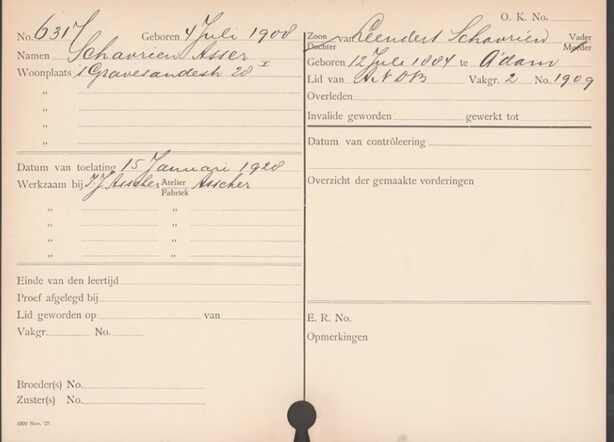 O. K. No.
No. 6317 Geboren 4 Juli 1908
Namen Schavrien Asser
Woonplaats 's Gravesandestr 28 I
"
"
"
"
Datum van toelating 15 Januari 1928
Werkzaam bij Asscher Atelier Fabriek Asscher
" "
" "
" "
Einde van den leertijd
Proef afgelegd bij
Lid geworden op van
Vakgr. No.
Broeder(s) No.
Zuster(s) No.
4000 Nov. '27.
Zoon Dochter van Leendert Schavrien Vader Moeder
Geboren 12 Juli 1884 te A'dam
Lid van ANDB Vakgr. 2 No. 1909
Overleden
Invalide geworden gewerkt tot
Datum van contrôleering
Overzicht der gemaakte vorderingen
E. R. No.
Opmerkingen